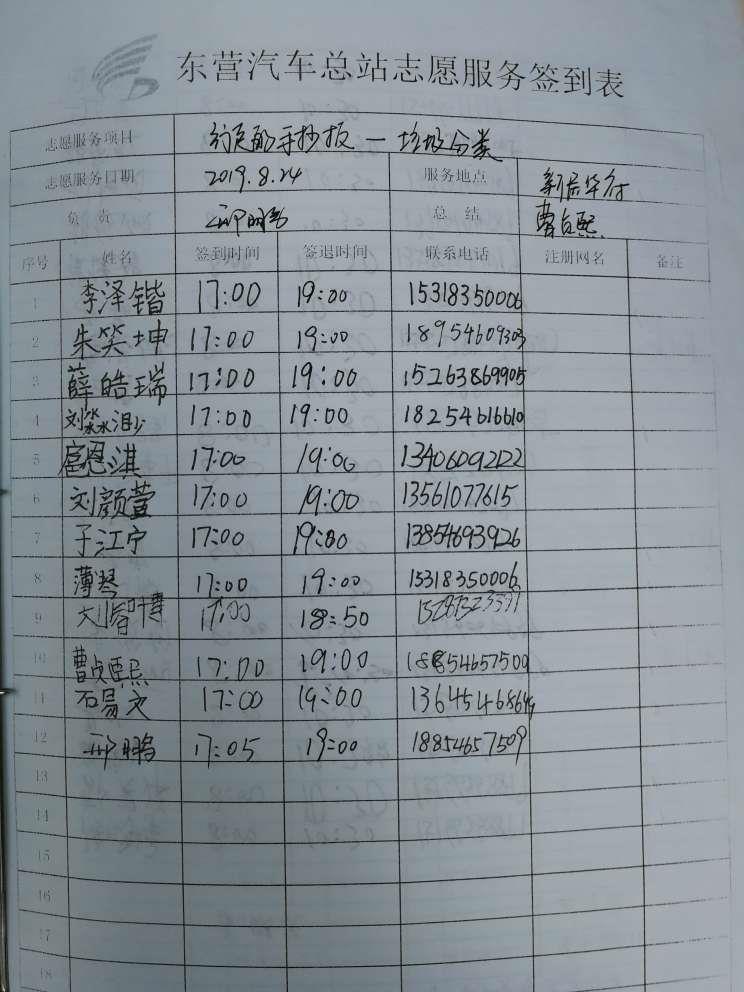 东营汽车总站志愿服务签到表
志愿服务项目 手抄报 — 垃圾分类
志愿服务日期 2019.8.24 服务地点
负 责 总 结 曹贞熙
序号 姓名 签到时间 签退时间 联系电话 注册网名 备注
1 李泽锴 17:00 19:00 15318350006
2 朱笑坤 17:00 19:00 18954609303
3 薛皓瑞 17:00 19:00 15263869905
4 刘淼 17:00 19:00 18254616610
5 扈恩淇 17:00 19:00 13406092122
6 刘颜萱 17:00 19:00 13561077615
7 于江宁 17:00 19:00 13854693926
8 薄琴 17:00 19:00 15318350006
9 刘智博 17:00 18:50
10 曹贞熙 17:00 19:00 18854657500
11 石易文 17:00 19:00 13645468649
12 邢鹏 17:05 19:00 18854657509
13
14
15
16
17
18